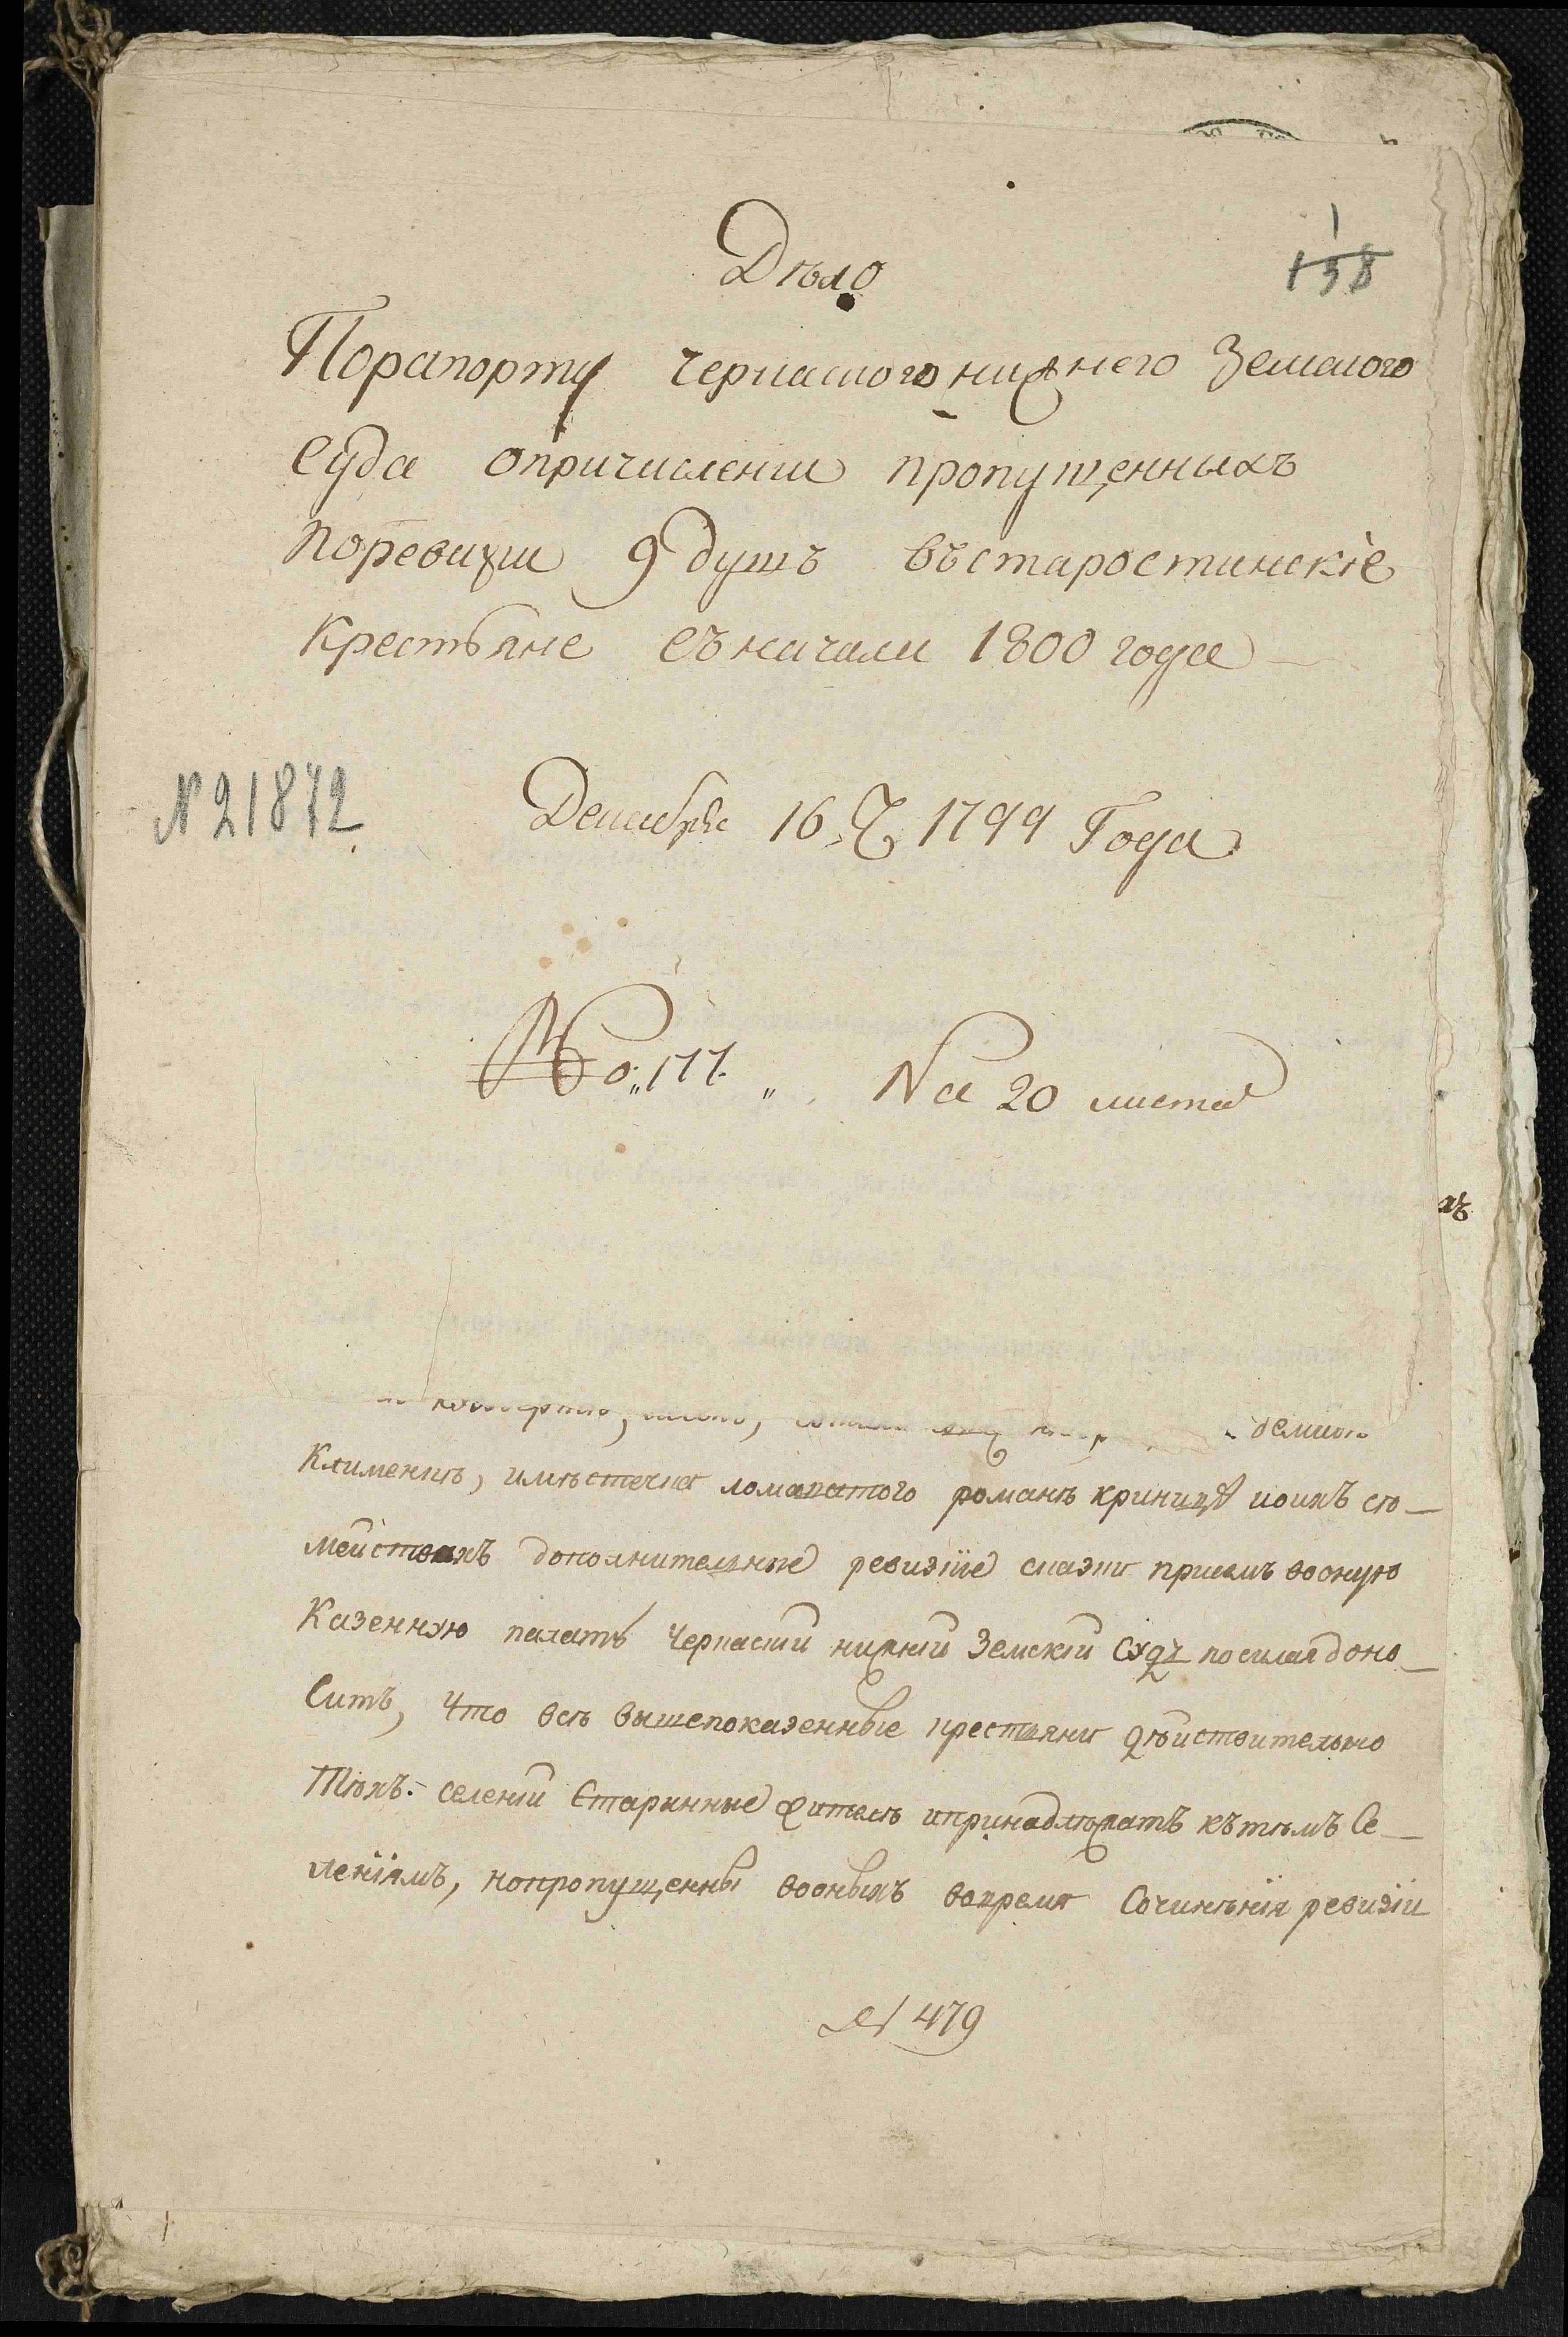 Дѣло
1
138
Порапорту черкаского нижнего Земского
Суда опричислении пропущенныхъ
поревизии 9 душъ въстаростинскіе
крестьяне съначала 1800 года
N 21872
Декабря 16 Ч 1799 Года
No. 177.
На 20 листа
хъ
Клименкъ, имѣстечка ломаватого романъ криница коихъ сѣ-
мействахъ дополнительные ревизіе сказки приемъ вооную
Казенную палатъ Черкаскій нижній Земскій Судъ посилая доно-
Ситъ, что всѣ вышепоказенные крестьяни дѣйствительно
Тѣхъ селеній Старинные жителѣ ипринадлѣжатъ кътѣмъ Се-
леніямъ, нопропущенны вооныхъ вовремя Сочинѣнія ревизіи
№ 479